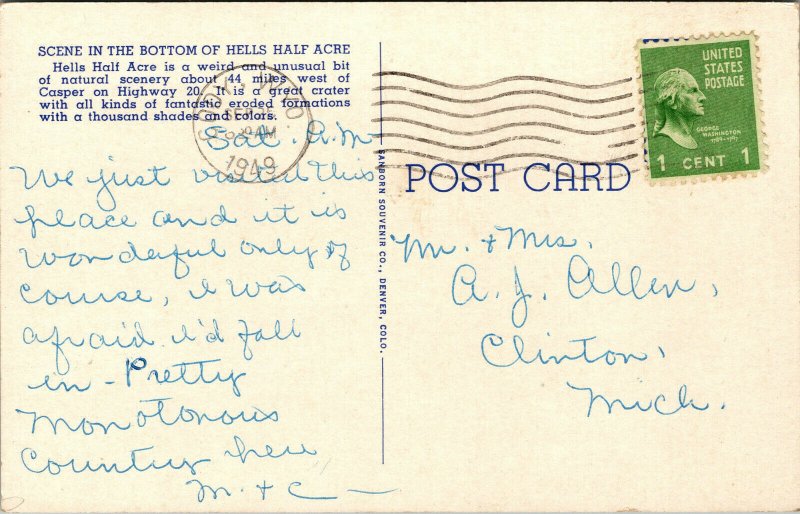 SCENE IN THE BOTTOM OF HELLS HALF ACRE
Hells Half Acre is a weird and unusual bit
of natural scenery about 44 miles west of
Casper on Highway 20. It is a great crater
with all kinds of fantastic eroded formations
with a thousand shades and colors.
Sat. A.M
We just visited this
place and it is
wonderful only of
course, I was
afraid I'd fall
in - Pretty
monotonous
country here
M. + C —
SANBORN SOUVENIR CO., DENVER, COLO.
WYO.
SEP
AM
1949
UNITED
STATES
POSTAGE
GEORGE
WASHINGTON
1789-1797
1 CENT 1
POST CARD
Mr. + Mrs.
A. J. Allen,
Clinton,
Mich.